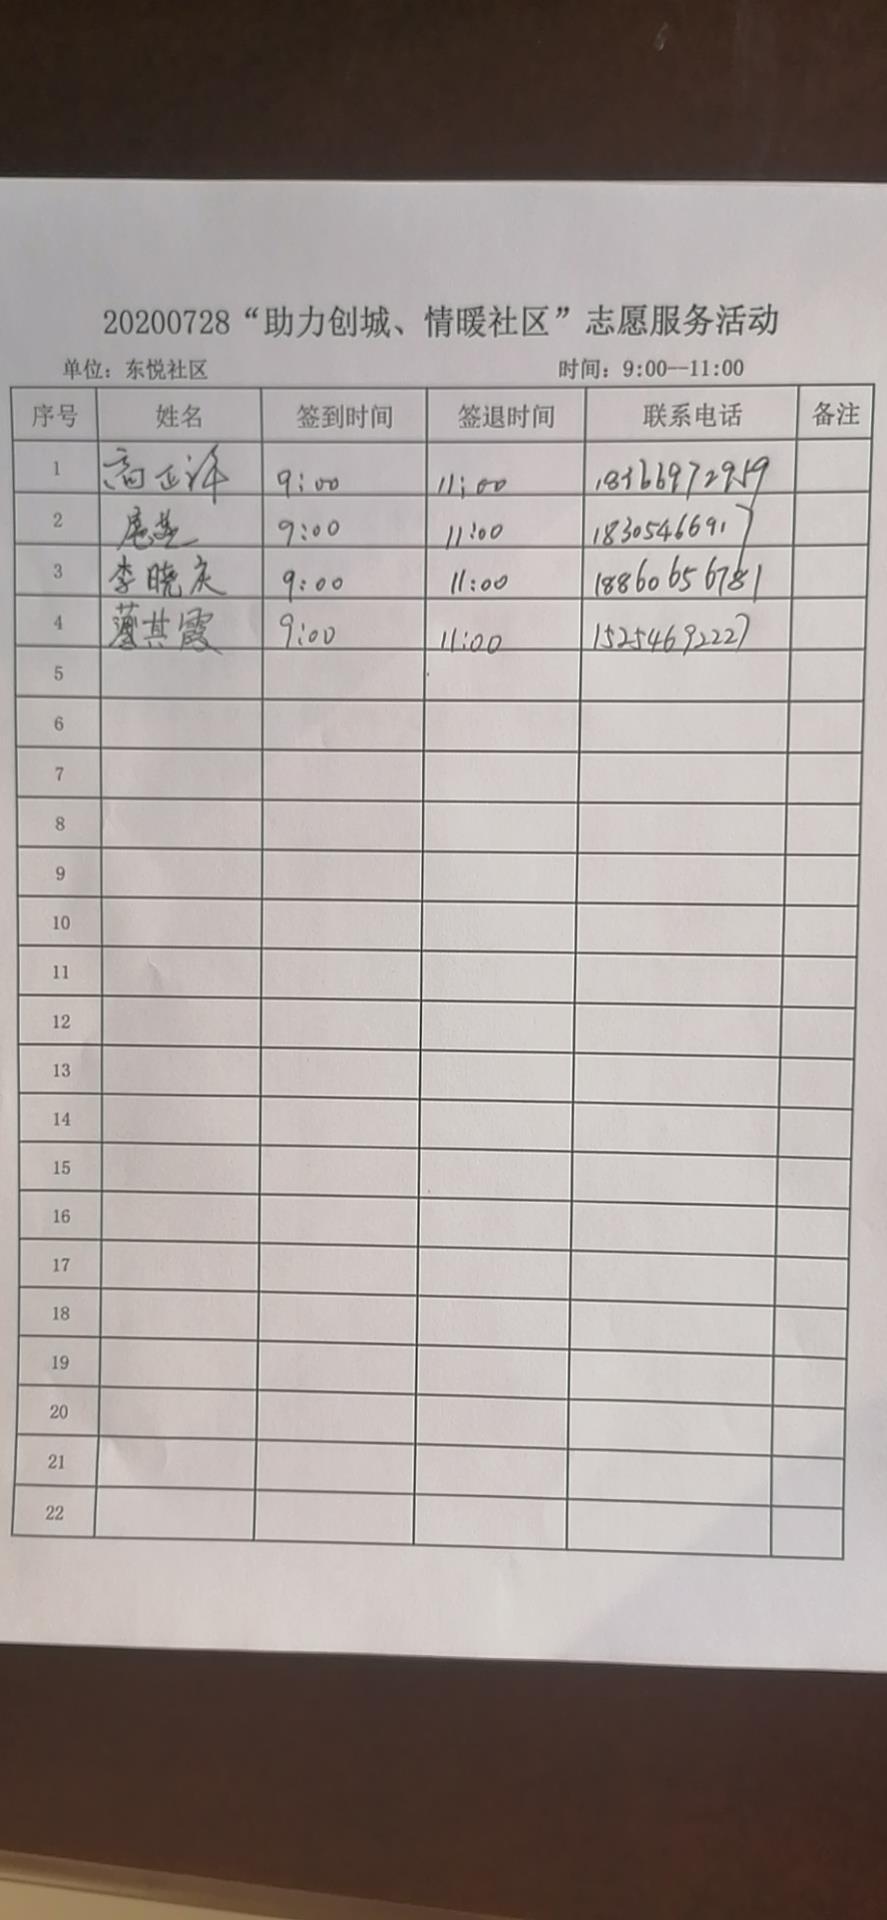 20200728“助力创城、情暖社区”志愿服务活动
单位：东悦社区 时间：9:00--11:00
序号 姓名 签到时间 签退时间 联系电话 备注
1 高正泽 9:00 11:00 18366972959
2 9:00 11:00 18305466917
3 李晓庆 9:00 11:00 18860656781
4 薄其霞 9:00 11:00 15254692227
5
6
7
8
9
10
11
12
13
14
15
16
17
18
19
20
21
22